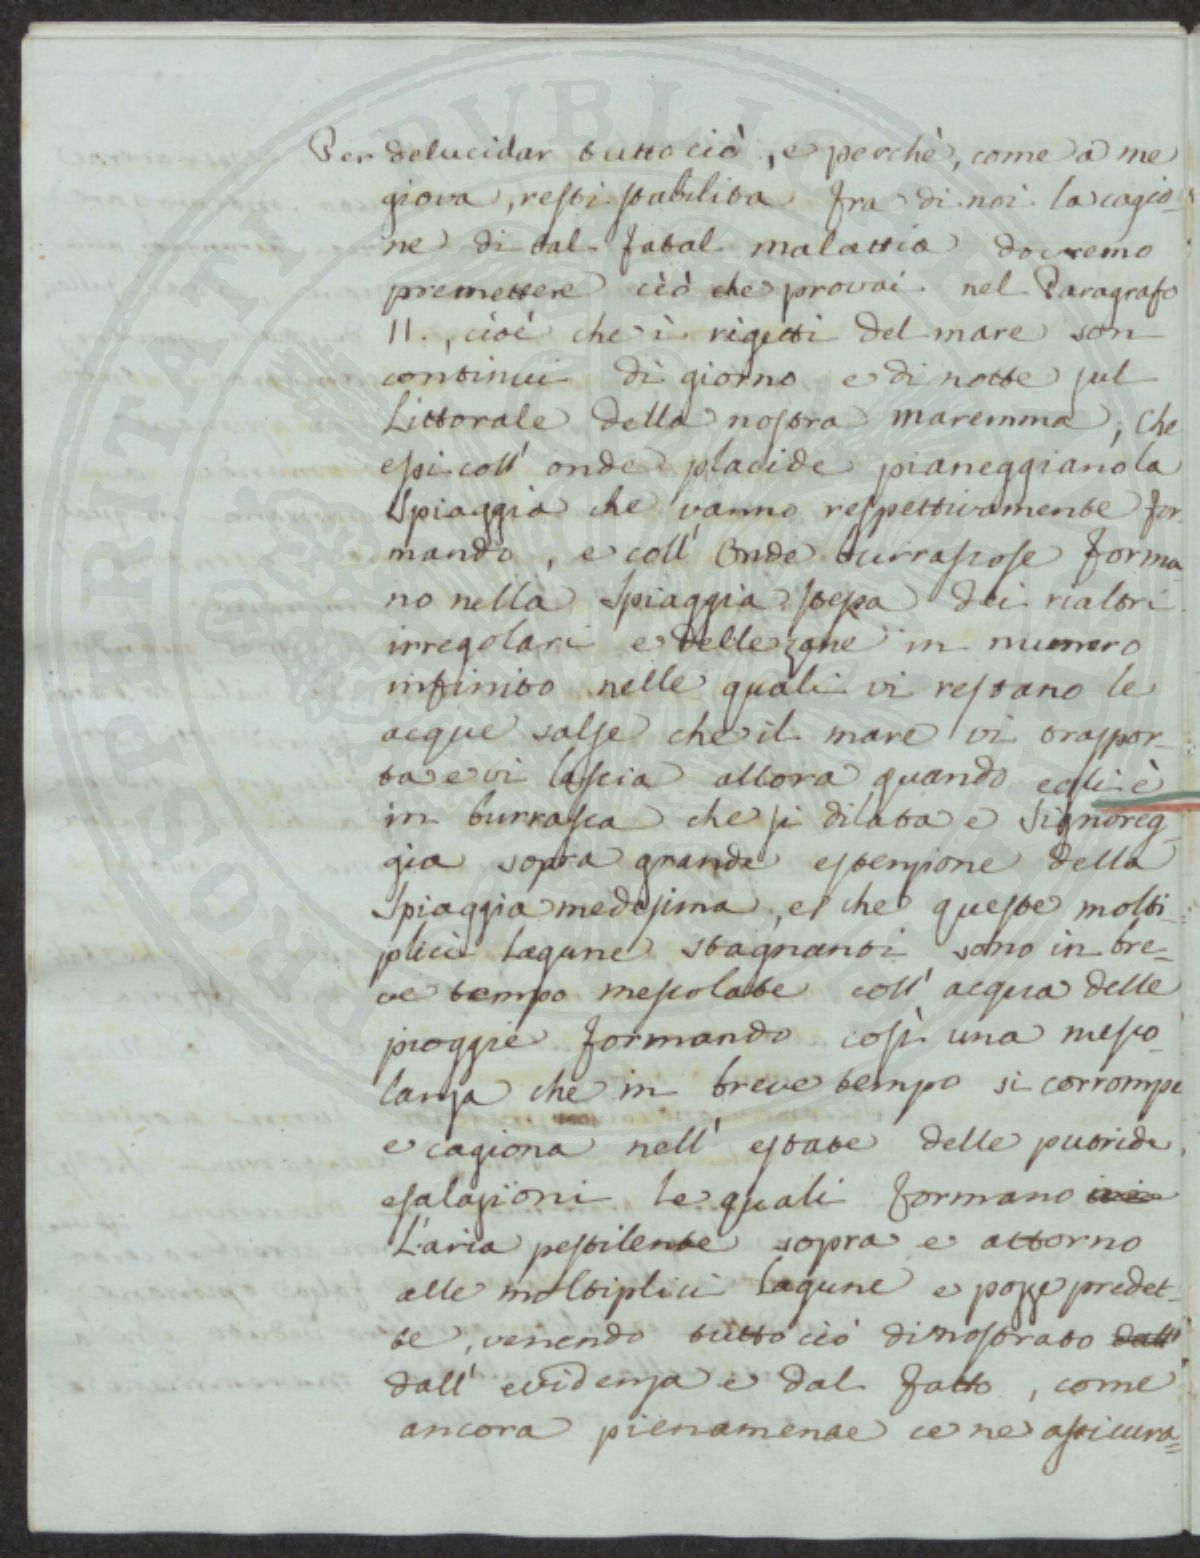 Per delucidar tutto ciò, e perchè, come a me
giova, resti stabilita fra di noi la cagio-
ne di tal fatal malattia dovremo
premettere ciò che provai nel Paragrafo
II., cioè che i rigetti del mare son
continui di giorno e di notte sul
Littorale della nostra maremma, che
essi coll' onde placide pianeggiano la
Spiaggia che vanno respettivamente for-
mando, e coll' Onde burrascose forma-
no nella Spiaggia stessa dei rialti
irregolari e delle zane in numero
infinito nelle quali vi restano le
acque salse che il mare vi traspor-
ta e vi lascia allora quando egli è
in burrasca che si dilata e Signoreg-
gia sopra grande estensione della
Spiaggia medesima, e che queste molti-
plici lagune stagnanti sono in bre-
ve tempo mescolate coll' acqua delle
pioggie formando così una mesco-
lanza che in breve tempo si corrompe
e cagiona nell' estate delle putride
esalazioni le quali formano
L'aria pestilente sopra e attorno
alle moltiplici lagune e pozze predet-
te, venendo tutto ciò dimostrato dall'
dall' evidenza e dal fatto, come
ancora pienamente ce ne assicura=
PROSPERITATI PUBLICAE